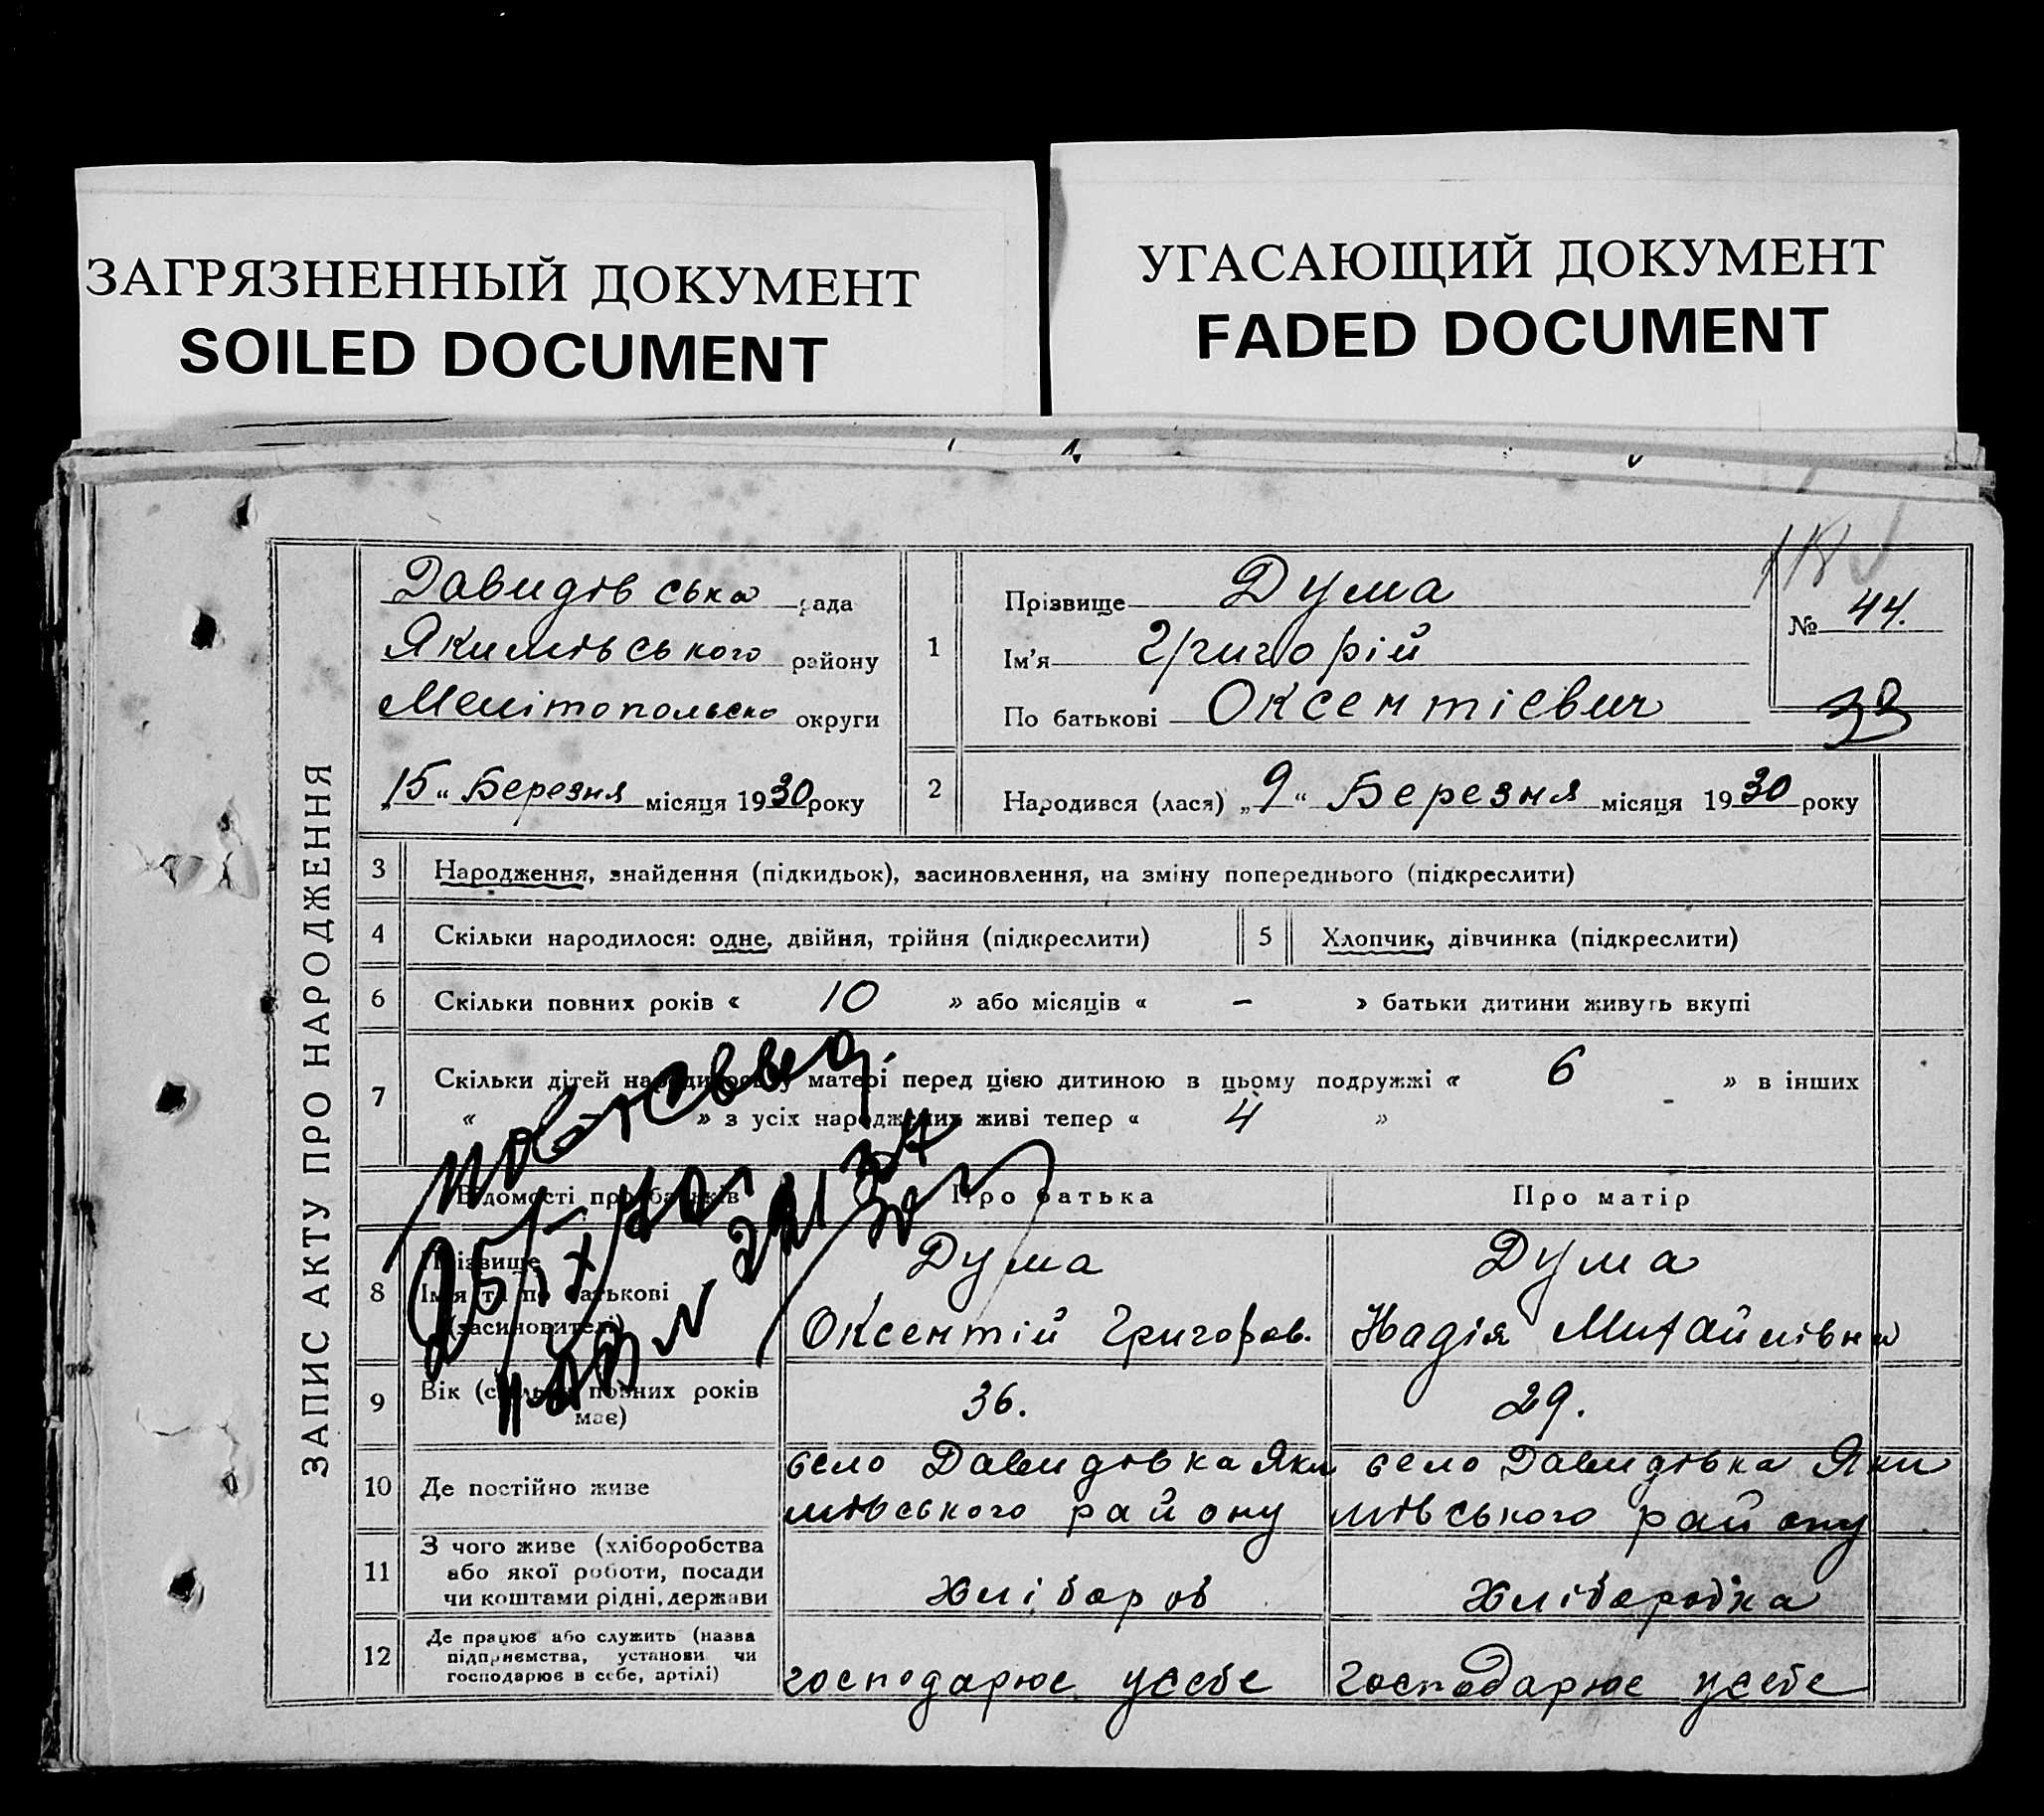 ЗАГРЯЗНЕННЫЙ ДОКУМЕНТ
SOILED DOCUMENT
УГАСАЮЩИЙ ДОКУМЕНТ
FADED DOCUMENT
ЗАПИС АКТУ ПРО НАРОДЖЕННЯ
Давидівська рада
Якимівського району
Мелітопольсько округи
„15“ Березня місяця 1930 року
1
Прізвище Дума
Ім'я Григорій
По батькові Оксентієвич
№ 44.
33
2 Народився (лася) „9“ Березня місяця 1930 року
3 Народження, знайдення (підкидьок), засиновлення, на зміну попереднього (підкреслити)
4 Скільки народилося: одне, двійня, трійня (підкреслити) 5 Хлопчик, дівчинка (підкреслити)
6 Скільки повних років « 10 » або місяців « - » батьки дитини живуть вкупі
7 Скільки дітей народилося у матері перед цією дитиною в цьому подружжі « 6 » в інших
« » з усіх народжених живі тепер « 4 »
Відомості про батьків Про батька Про матір
8 Прізвище Дума Дума
Ім'я та по батькові Оксентій Григоров. Надія Михайлівна
(засиновителі)
9 Вік (скільки повних років має) 36. 29.
10 Де постійно живе село Давидівка Яки село Давидівка Яки
мівського району мівського району
11 З чого живе (хліборобства
або якої роботи, посади
чи коштами рідні, держави Хлібороб Хлібаробка
12 Де працює або служить (назва
підприємства, установи чи
господарює в себе, артілі) господарює усебе господарює усебе